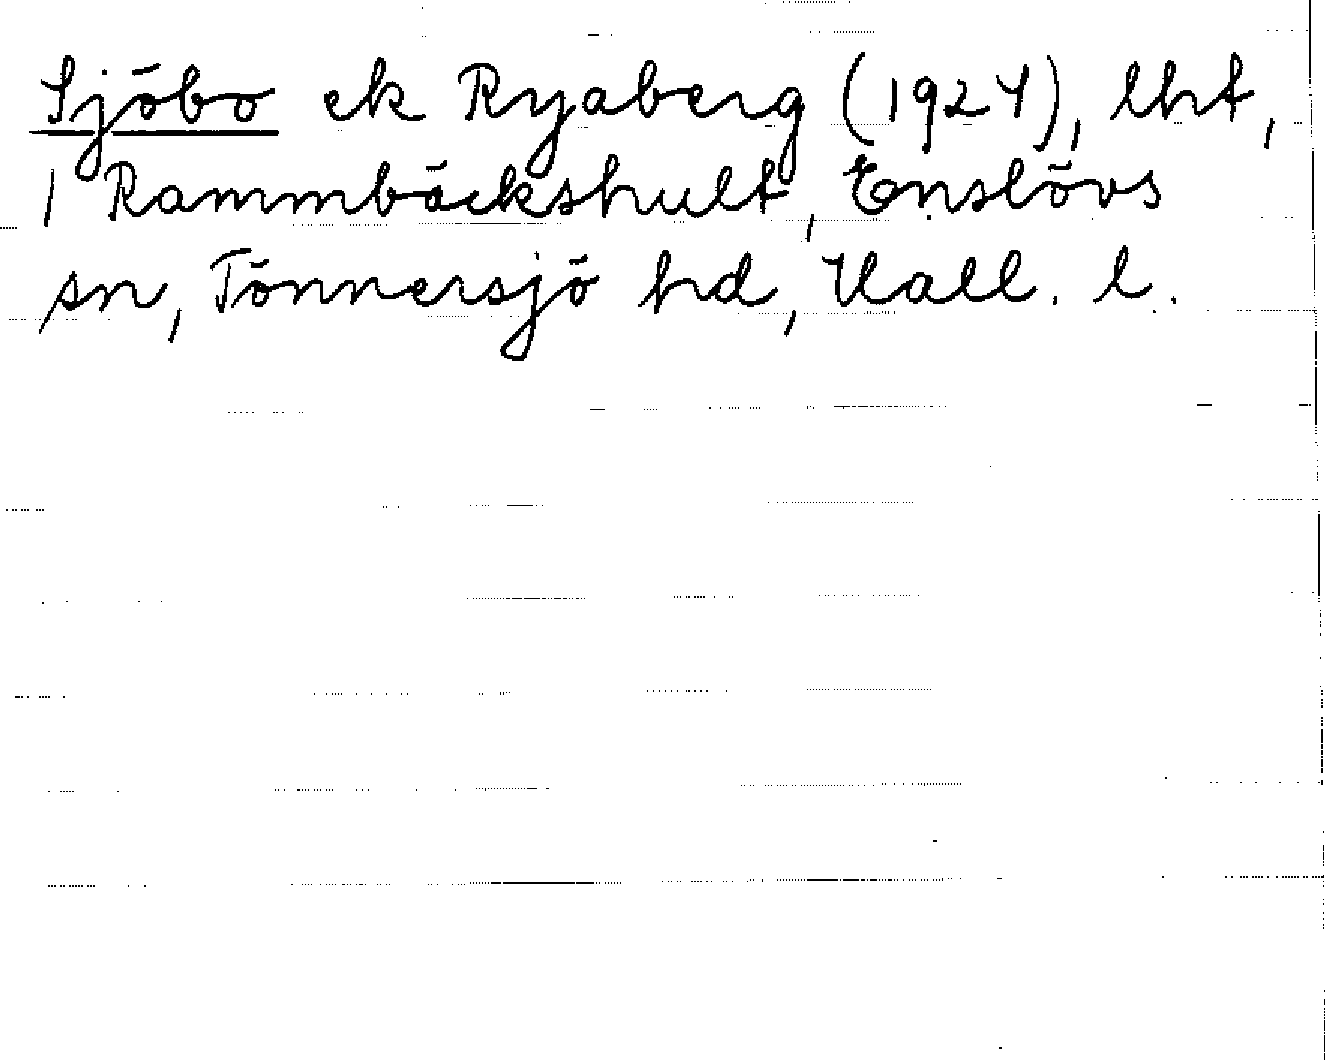 Sjöbo ek Ryaberg (1924), lht,
1 Rammbäckshult, Enslövs
sn, Tönnersjö hd, Hall. l.